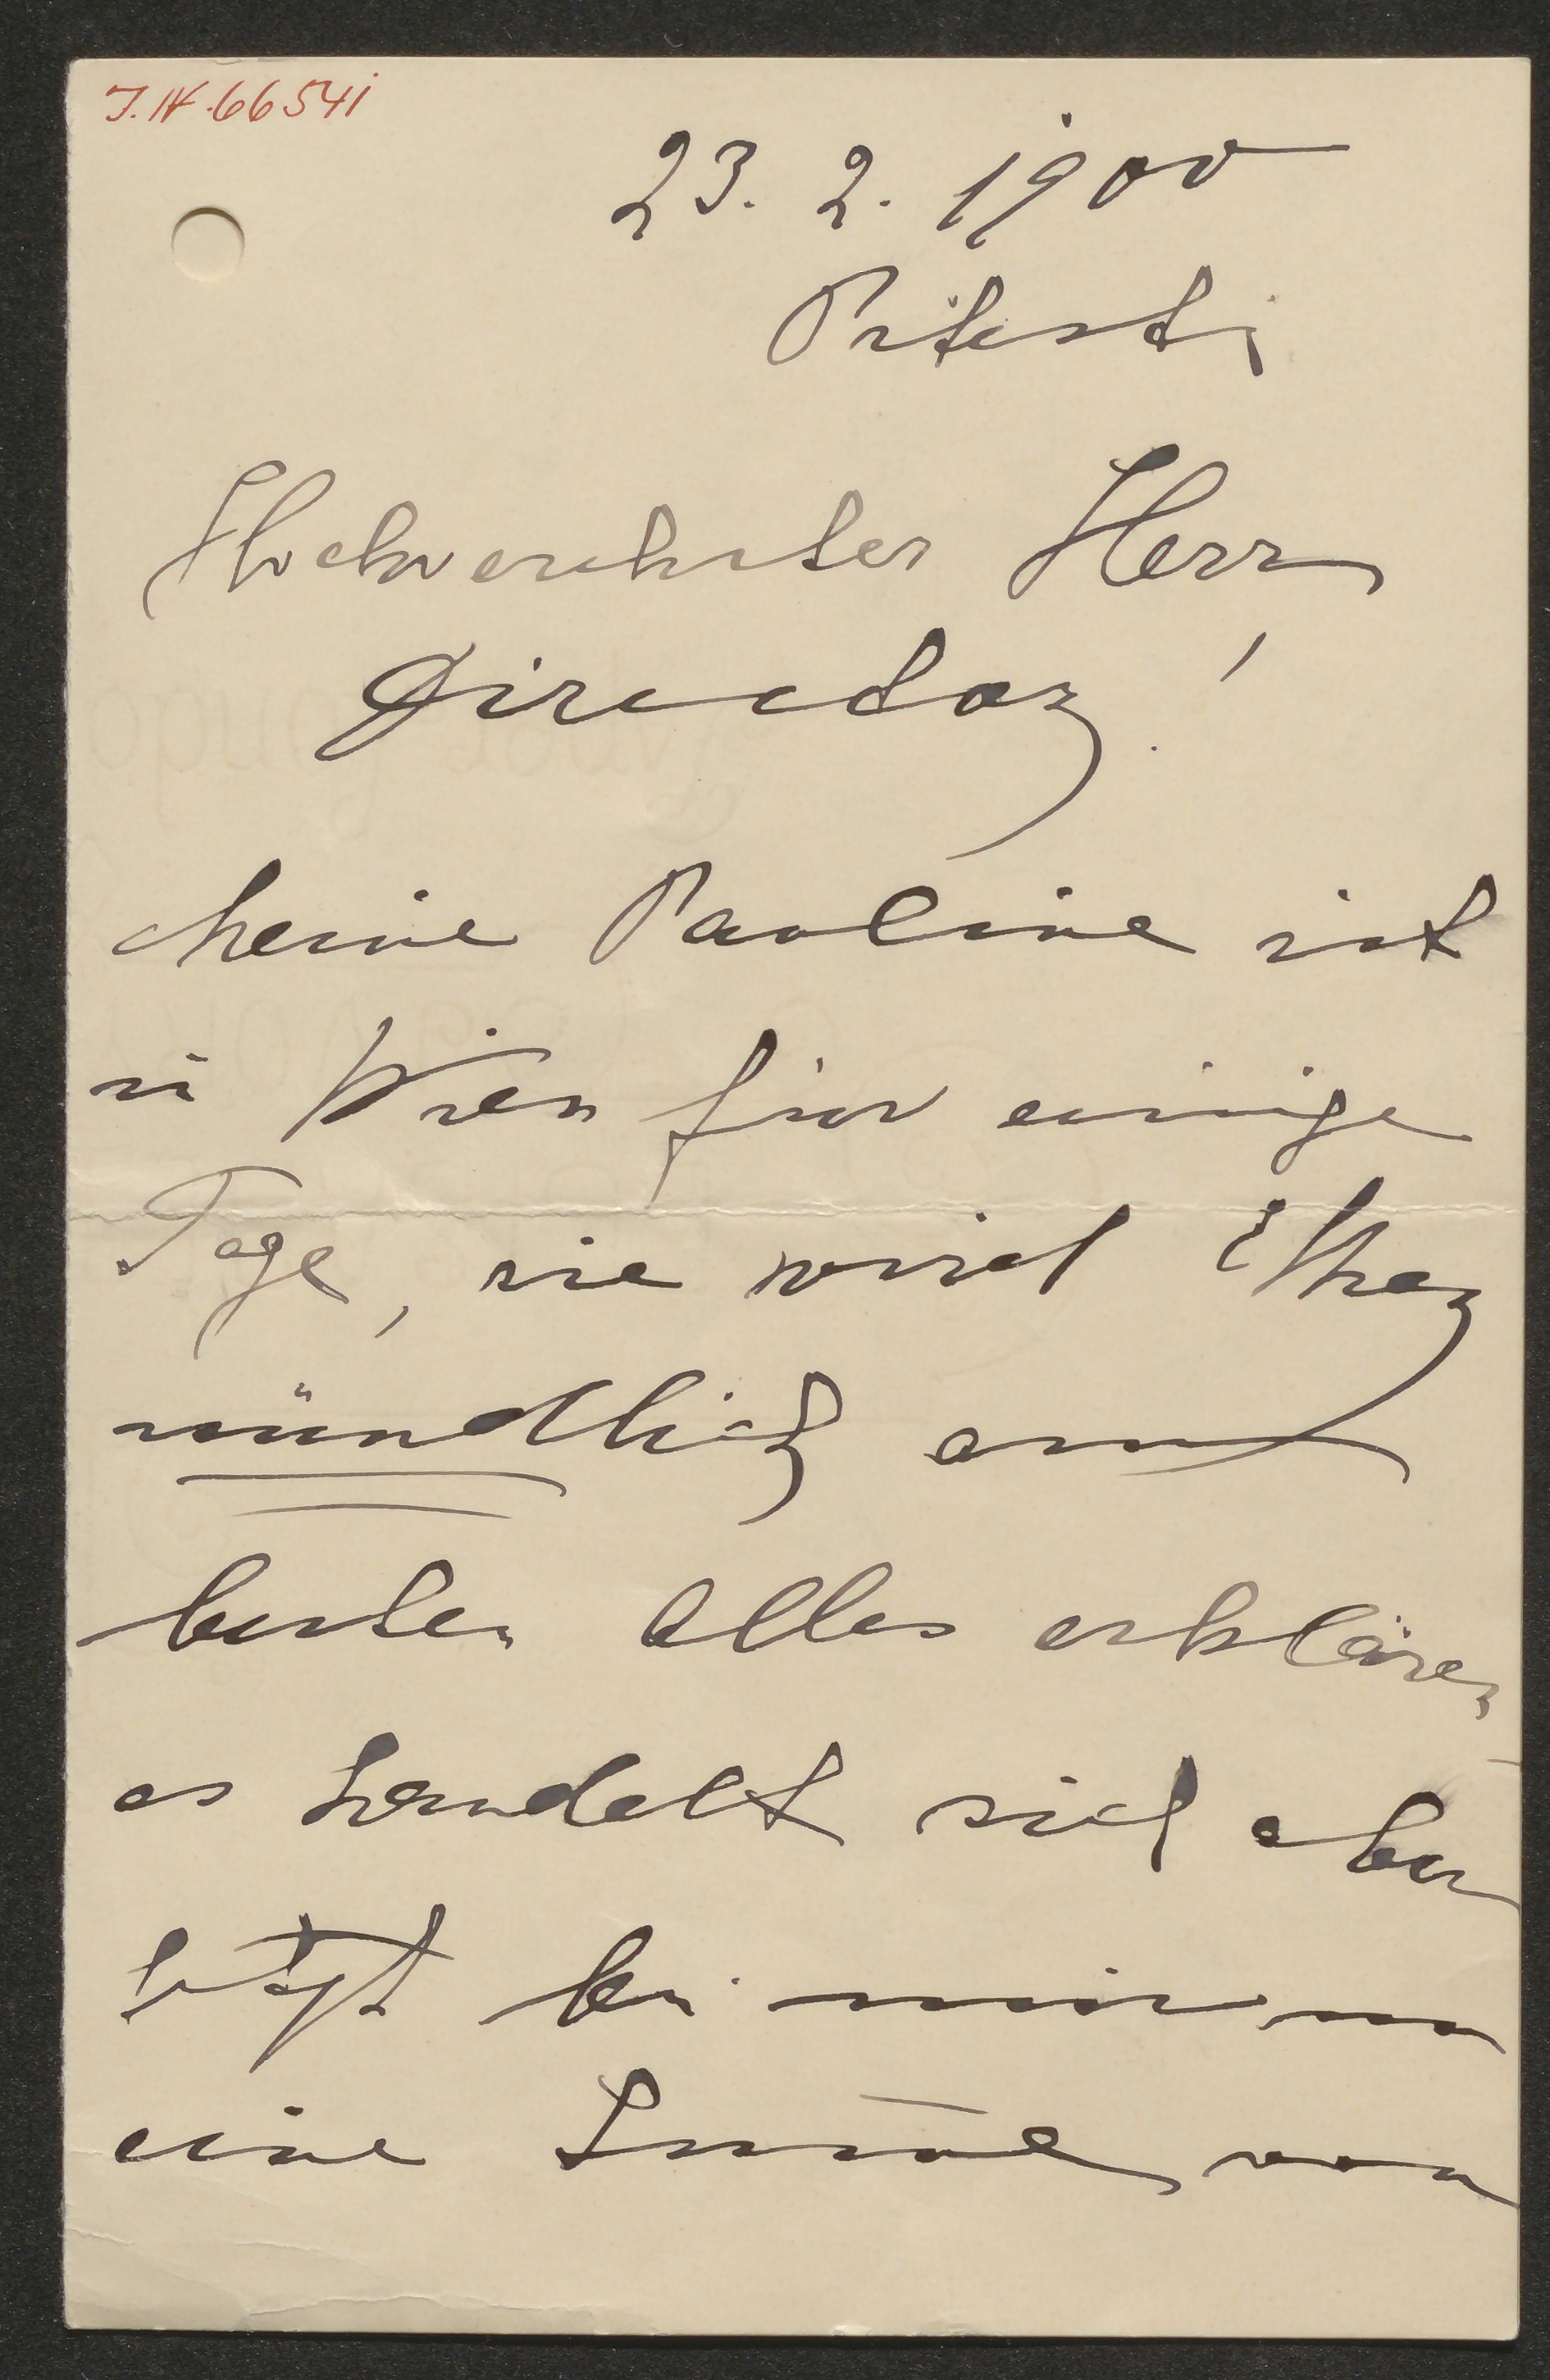 J.N. 66541
23. 2. 1900
Pitesti
Hochverehrter Herr
Director!
Meine Pauline ist
in Wien für einige
Tage, sie wird Ihnen
mündlich am
besten Alles erklären,
es handelt sich aber
jetzt bei mir um
eine Summe von